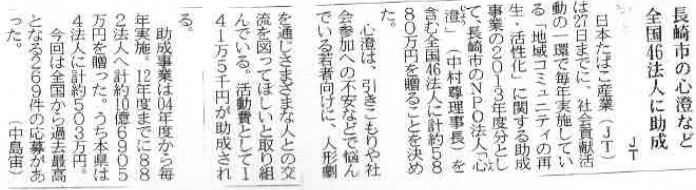 長崎市の心澄など
全国46法人に助成
JT
日本たばこ産業（JT）
は27日までに、社会貢献活
動の一環で毎年実施してい
る「地域コミュニティの再
生・活性化」に関する助成
事業の2013年度分とし
て、長崎市のNPO法人「心
澄」（中村尊理事長）を
含む全国46法人に計約58
80万円を贈ることを決め
た。
心澄は、引きこもりや社
会参加への不安などで悩ん
でいる若者向けに、人形劇
を通じさまざまな人との交
流を図ってほしいと取り組
んでいる。活動費として1
41万5千円が助成され
る。
助成事業は04年度から毎
年実施。12年度までに88
2法人へ計約10億6905
万円を贈った。うち本県は
4法人に計約503万円。
今回は全国から過去最高
となる269件の応募があ
った。（中島宙）